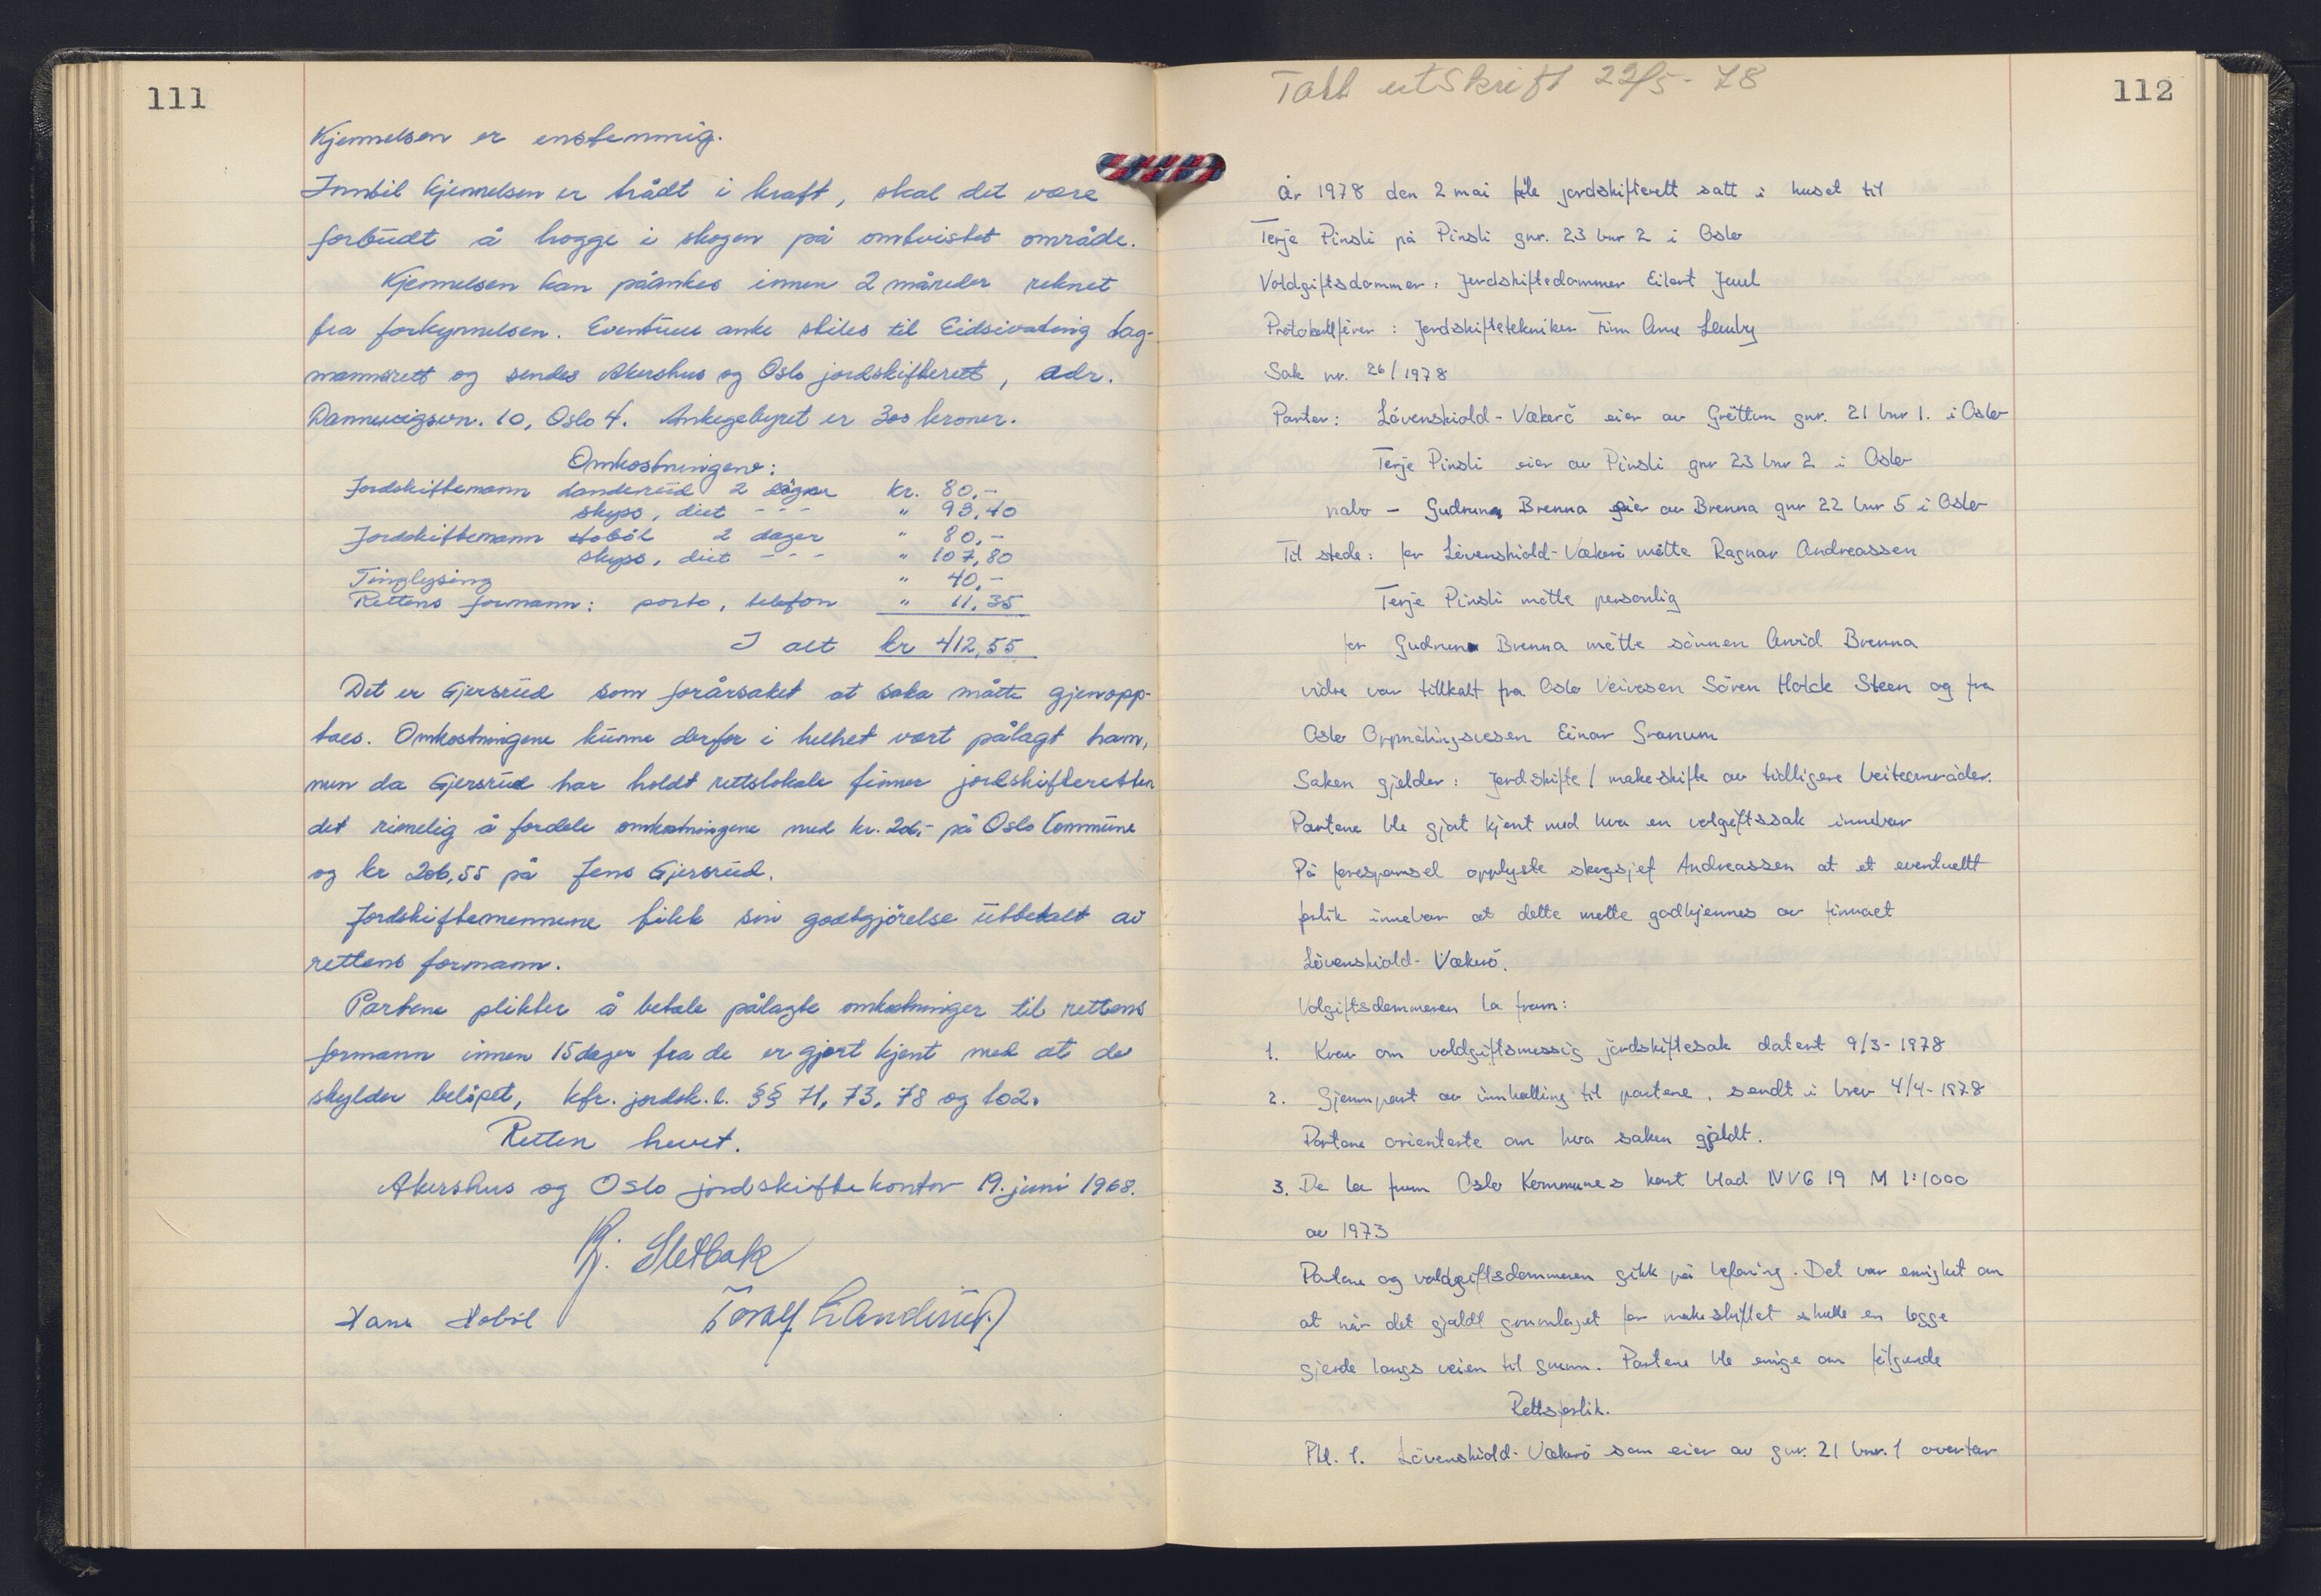 111
Kjennelsen er enstemmig.
Inntil kjennelsen er trådt i kraft, skal det være
forbudt å hogge i skogen på omtvistet område.
Kjennelsen kan påankes innen 2 måneder reknet
fra forkynnelsen. Eventuell anke stiles til Eidsivating lag-
mannsrett og sendes Akershus og Oslo jordskifterett, adr.
Dannevigsvn. 10, Oslo 4. Ankegebyret er 300 kroner.
Omkostningene:
Jordskiftemann Landerud 2 dager kr. 80,-
skyss, diet - - - " 93,40
Jordskiftemann Hobøl 2 dager " 80,-
skyss, diet - - - " 107,80
Tinglysing " 40,-
Rettens formann: porto, telefon " 11,35
I alt kr 412,55
Det er Gjersrud som forårsaket at saka måtte gjenopp-
taes. Omkostningene kunne derfor i helhet vært pålagt ham,
men da Gjersrud har holdt rettslokale finner jordskifteretten
det rimelig å fordele omkostningene med kr. 206,- på Oslo Kommune
og kr 206,55 på Jens Gjersrud.
Jordskiftemennene fikk sin godtgjörelse utbetalt av
rettens formann.
Partene plikter å betale pålagte omkostninger til rettens
formann innen 15 dager fra de er gjort kjent med at de
skylder beløpet, kfr. jordsk.l. §§ 71, 73, 78 og 102.
Retten hevet.
Akershus og Oslo jordskiftekontor 19. juni 1968.
Kj. Sletbak
Hans Hobøl Toralf Landerud
112
Tatt utskrift 22/5-78
År 1978 den 2 mai ble jordskifterett satt i huset til
Terje Pinsli på Pinsli gnr. 23 bnr 2 i Oslo
Voldgiftsdommer: Jordskiftedommer Eilert Juul
Protokollfører: Jordskiftetekniker Finn Arne Lemby
Sak nr. 26/1978
Parter: Lövenskiold-Vækerö eier av Gröttum gnr. 21 bnr 1. i Oslo
Terje Pinsli eier av Pinsli gnr 23 bnr 2 i Oslo
nabo - Gudrun Brenna eier av Brenna gnr 22 bnr 5 i Oslo
Til stede: for Lövenskiold-Vækerö mötte Ragnar Andreassen
Terje Pinsli mötte personlig
for Gudrun Brenna mötte sönnen Arvid Brenna
vidre var tillkalt fra Oslo Veivesen Sören Holck Steen og fra
Oslo Oppmålingsvesen Einar Granum
Saken gjelder: Jordskifte/makeskifte av tidligere beiteområder.
Partene ble gjort kjent med hva en volgiftssak innebar
På forespørsel opplyste skogsjef Andreassen at et eventuellt
forlik innebar at dette måtte godkjennes av firmaet
Lövenskiold-Vækerö.
Volgiftsdommeren la fram:
1. Krav om voldgiftsmessig jordskiftesak datert 9/3-1978
2. Gjennpart av innkalling til partene, sendt i brev 4/4-1978
Partene orienterte om hva saken gjaldt.
3. De la fram Oslo Kommunes kart blad NVG 19 M 1:1000
av 1973
Partene og voldgiftsdommeren gikk på befaring. Det var enighet om
at når det gjaldt grunnlaget for makeskiftet skulle en legge
gjerde langs veien til grunn. Partene ble enige om følgende
Rettsforlik.
Pkt. 1. Lövenskiold-Vækerö som eier av gnr. 21 bnr. 1 overtar